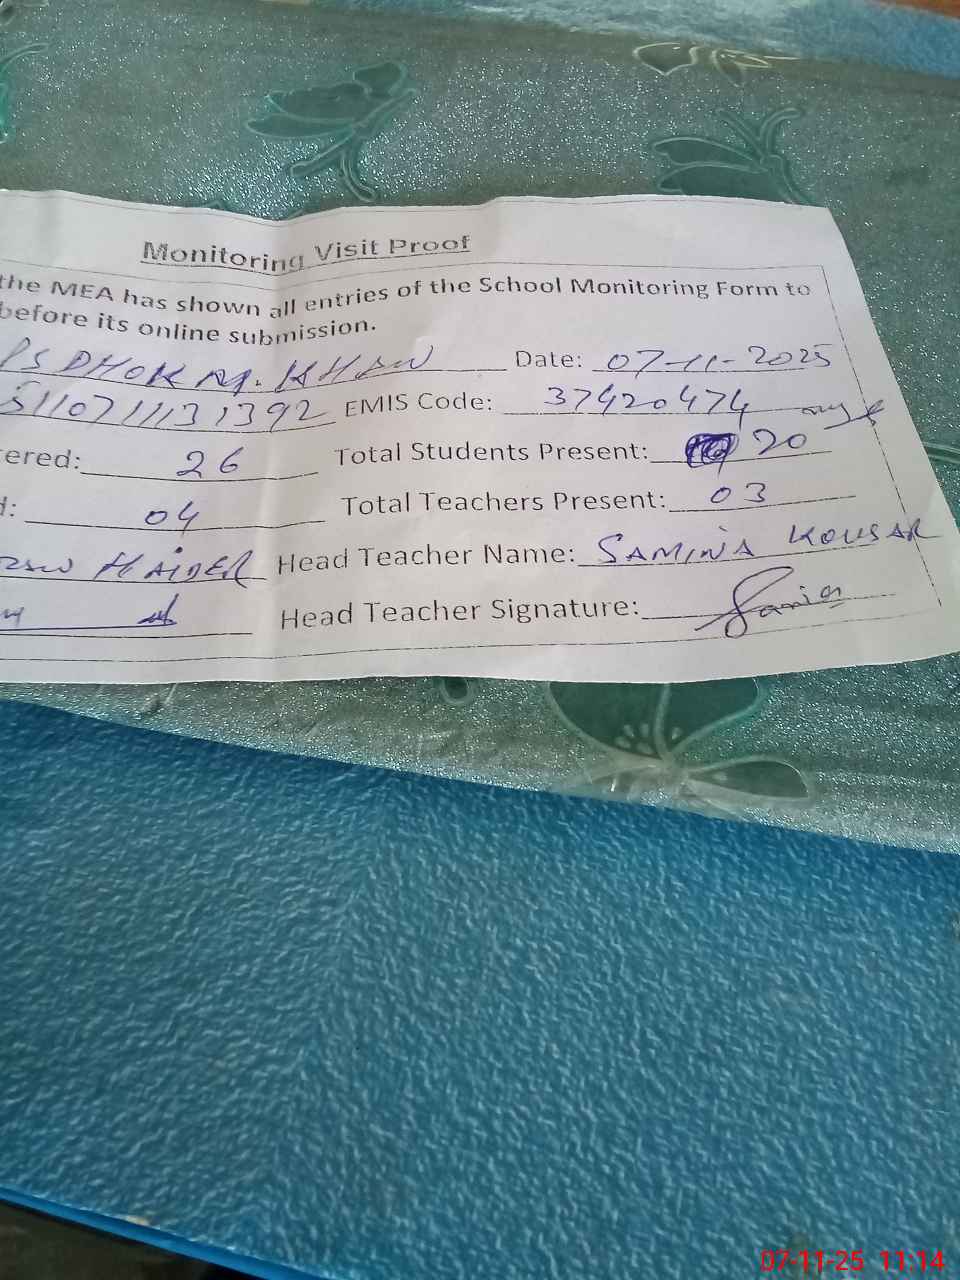 Monitoring Visit Proof
the MEA has shown all entries of the School Monitoring Form to
before its online submission.
PS DHOK M. KHAN Date: 07-11-2025
5110711131392 EMIS Code: 37420474
ered: 26 Total Students Present: 20
d: 04 Total Teachers Present: 03
HAIDER Head Teacher Name: SAMINA KOUSAR
Head Teacher Signature: Samina
07-11-25 11:14